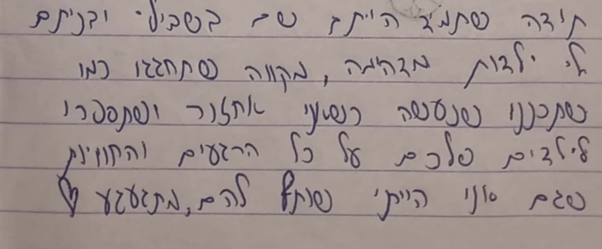 תודה שתמיד הייתם שם בשבילי ובניתם
לי ילדות מדהימה, מקווה שתחגגו כמו
שתכננו שנעשה כשאני אחזור ושתספרו
לילדים שלכם על כל הרגעים והחוויות
שגם אני הייתי שותף להם, מתגעגע ♡